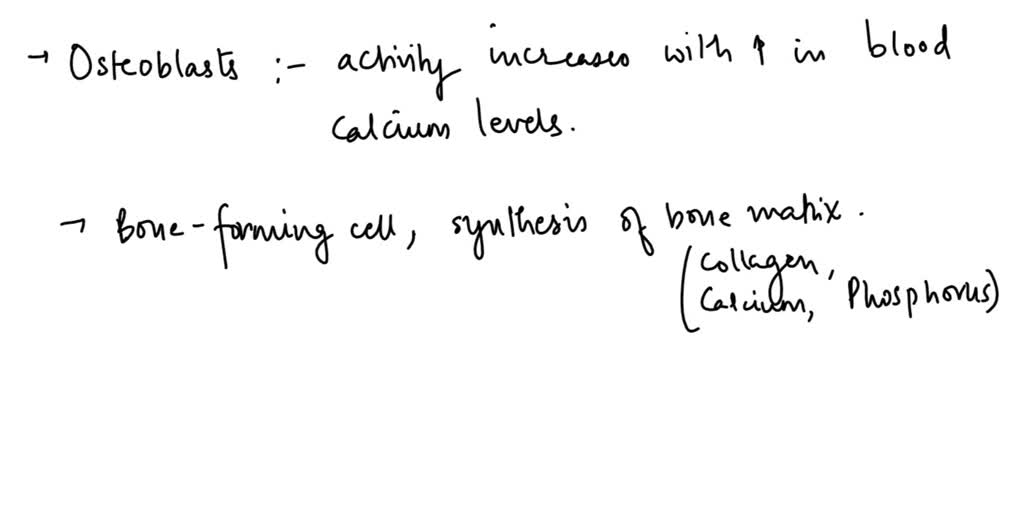 → Osteoblasts :- activity increases with ↑ in blood
calcium levels.
→ Bone-forming cell, synthesis of bone matrix.
(Collagen,
Calcium, Phosphorus)